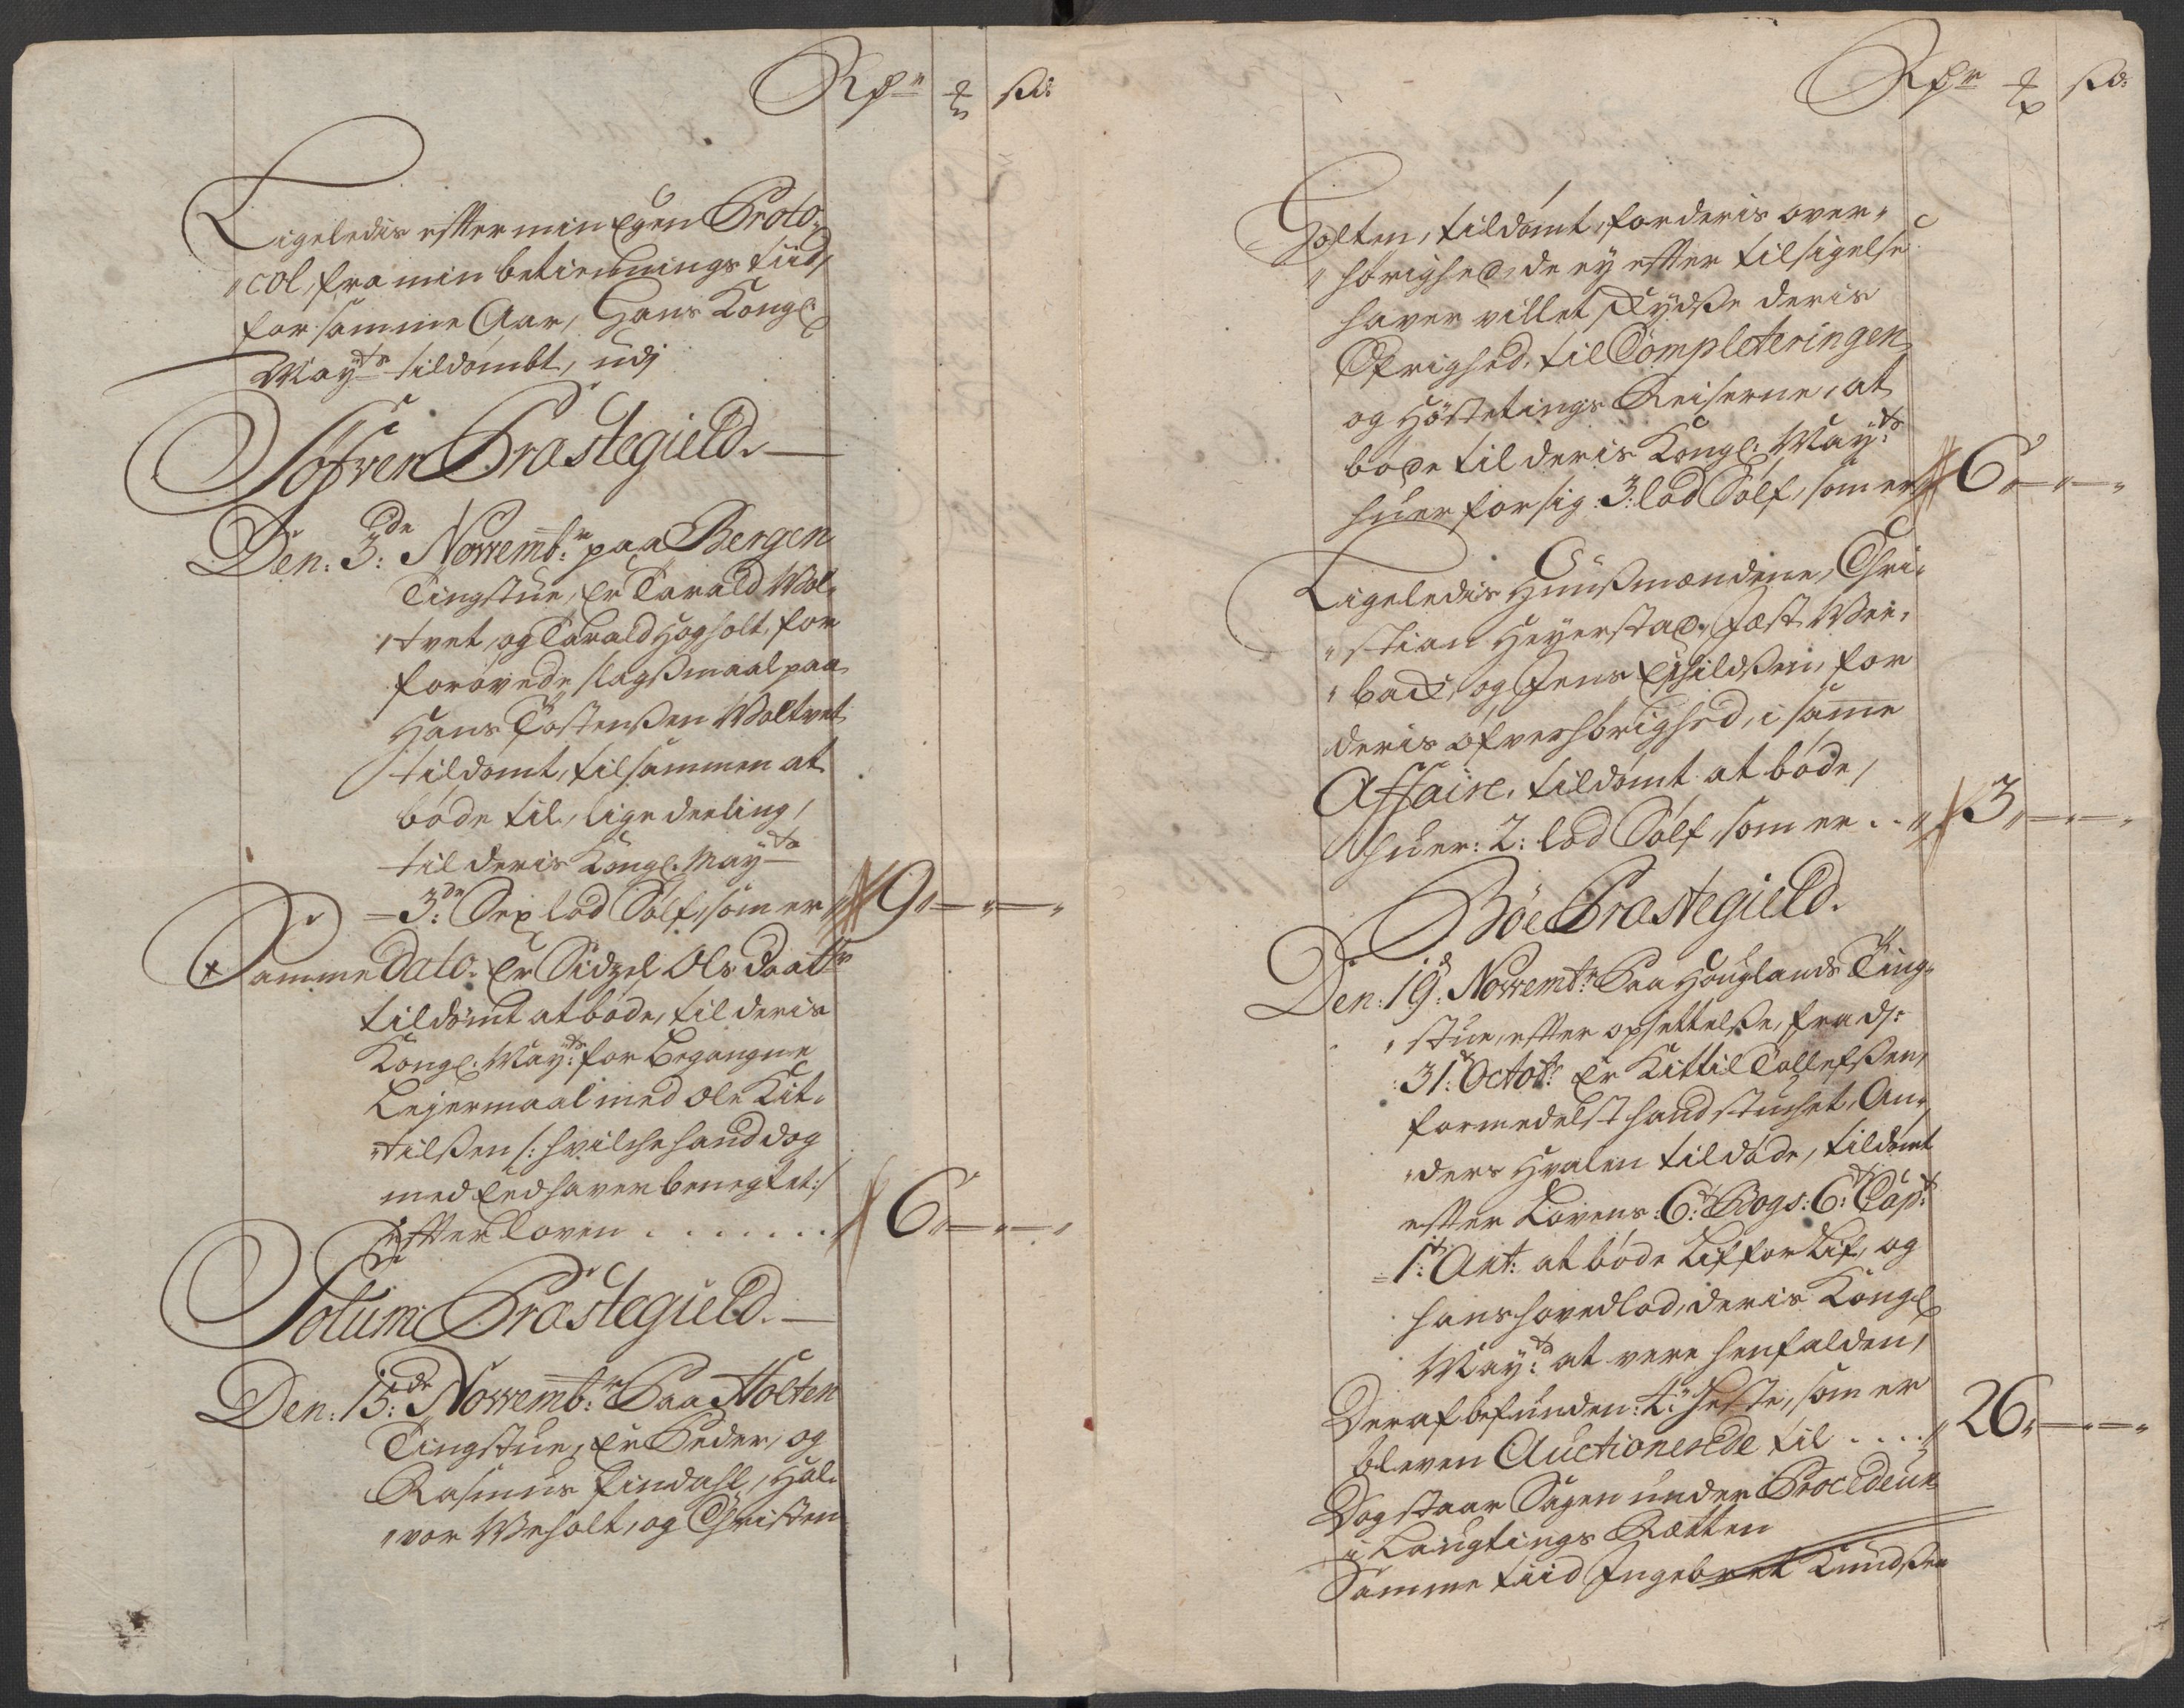 Rdr ₰ ß:
Ligeledis efter min Egen Proto-
"col, fra min betiennings tiid,
for samme Aar, Hans Kongl:
Mayts tildømbt, udj
Præstegield.
Den: 3de: Novembr: paa Bergen
Tingstue, Er Tarald Wol-
"tvet, og Tarald Hogholt, for
forøvede slagsmaal paa
Hans Tostensen Woltvet
tildømt, tilsammen at
bøde til lige deeling,
til deris Kongl. Mayts
3de: Sex lod Sølf, som er " 9 " — " — "
Samme Dato: Er Sidzel Ols daatter
tildømt at bøde, til deris
Kongl: Mayts: for begangne
Lejermaal med Ole Kit-
"tilsen /: hvilche hand dog
med Eed haver benegtet :/
efter loven . . . . . . . " 6 " — " — "
Solum Præstegield.
Den: 15de: Novembr: Paa Holten
Tingstue, Er Peder, og
Rasmus Findahl, Hal-
"vor Weholt, og Christen
Rdr ₰ ß:
Holten, tildømt, for deris over-
"hørighed, de ey efter tilsigelse
haver villet skydse deris
Øfrighed, til Completeringen
og Høstetings Reiserne, at
bøde til deris Kongl: Mayts:
huer for sig: 3: lod Sølf, som er " 6 " — " — "
Ligeledis Huusmændene, Chri-
"stian Heyerstad,
"bach, og Jens Eskildsen, for
deris ofverhørighed, i samme
Affaire, tildømt at bøde,
huer: 2: lod Sølf, som er . . " 3 " — " — "
Bøe Præstegield.
Den: 19d: Novembr: Paa Houglands Ting-
"stue, efter opsettelse, fra d:
31: Octobr: Er Kittil Tollefsen,
formedelst hand stuchet, An-
"ders Hvalen til døde, tildømt
efter Lovens: 6t: Bogs: 6t: Capt:
1t: Art: at bøde Lif for Lif, og
hans hovedlod, deris Kongl
Mayts: at vere henfalden,
Deraf befunden: 4: Heste, som er
bleven Auctionerede til . . . . " 26 " — " — "
Dog staar Sagen under Procedeur
i Laugtings Rætten
Samme tiid Ingebret Knudsen